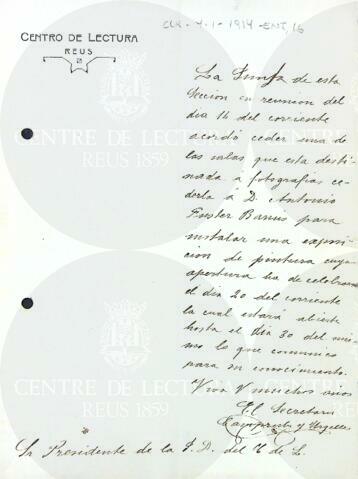 CENTRO DE LECTURA
REUS
CLR - 4.1 - 1914 - ENT, 16
La Junta de esta
Sección en reunion del
dia 16 del corriente
acordó ceder una de
las salas que esta desti-
nada a fotografias ce-
derla a D. Antonio
Fuster para
instalar una exposi-
cion de pintura cuya
apertura ha de celebrarse
el dia 20 del corriente
la cual estará abierta
hasta el dia 30 del mis-
mo lo que comunico
para su conocimiento.
Viva V muchos años
El Secretario
Sr Presidente de la J. D. del C de L.
CENTRE DE LECTURA
REUS 1859
CENTRE DE LECTURA
REUS 1859